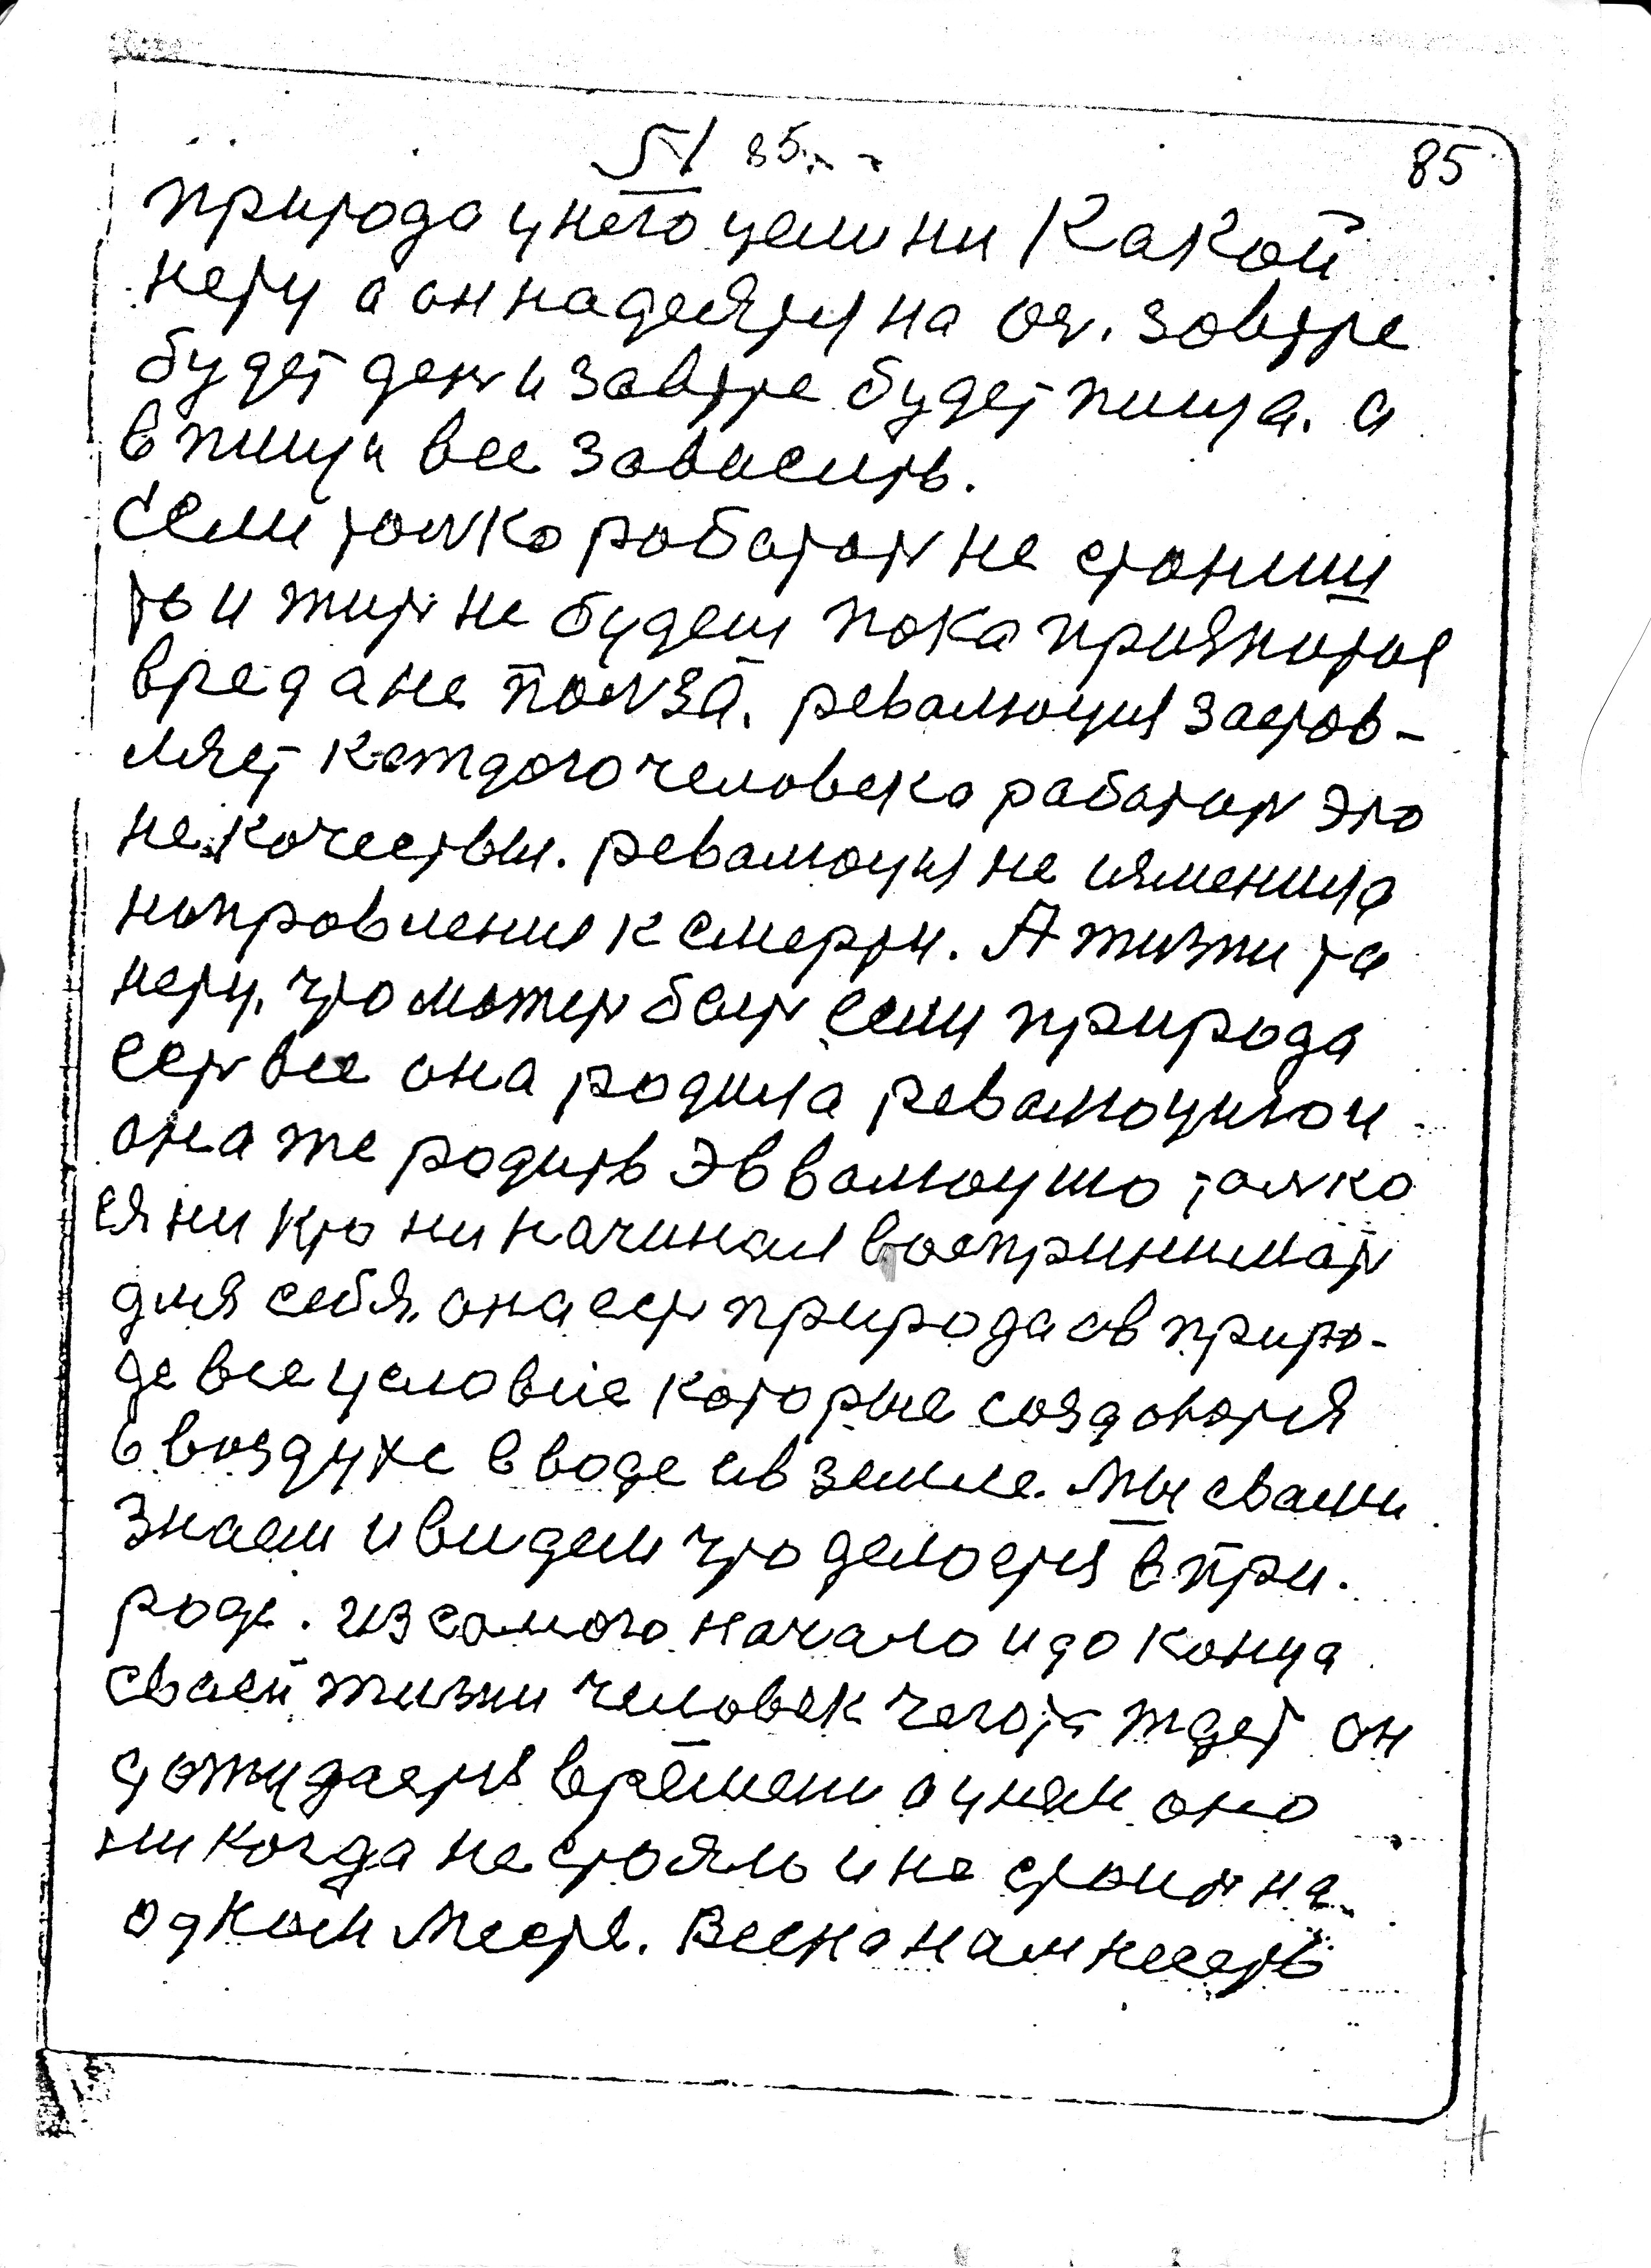 51 85
85
природа у него цели ни какой
нету а он надеятся на оч. завтре
будет ден и завтре будет пища. а
в пищи все зависить.
Если толко работат не станиш
ты и жит не будеш пока признатся
вред а не полза. революция застав-
ляет каждого человека работат это
не качествы. революция не изменила
направления к смерти. А жизни та
нету, что может быт если природа
ест все она родила революцию и
она же родить эвволюцию толко
ея ни кто ни начинал воспринимат
для себя, она ест природа а в приро-
де все условие которые создоются
в воздухе в воде и в земле. Мы с вами
знаем и видем что делоется в при.
роде. из самого начало и до конца
сваей жизни человек чегото ждет он
дожидается времени а у нем оно
ни когда не стояло и не стоит на
одном месте. Весна нам несеть